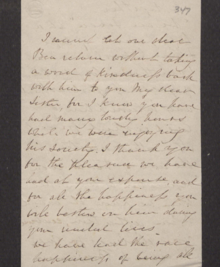 349
I cannot let our dear
Ben return without taking
a word of kindness back
with him to you My dear
Sister for I know you have
had many lonely hours
while we were enjoying
his society, I thank you
for the pleasure we have
had at your expense, and
for all the happiness you
will bestow on him during
your united lives.
We have had the rare
happiness of being all